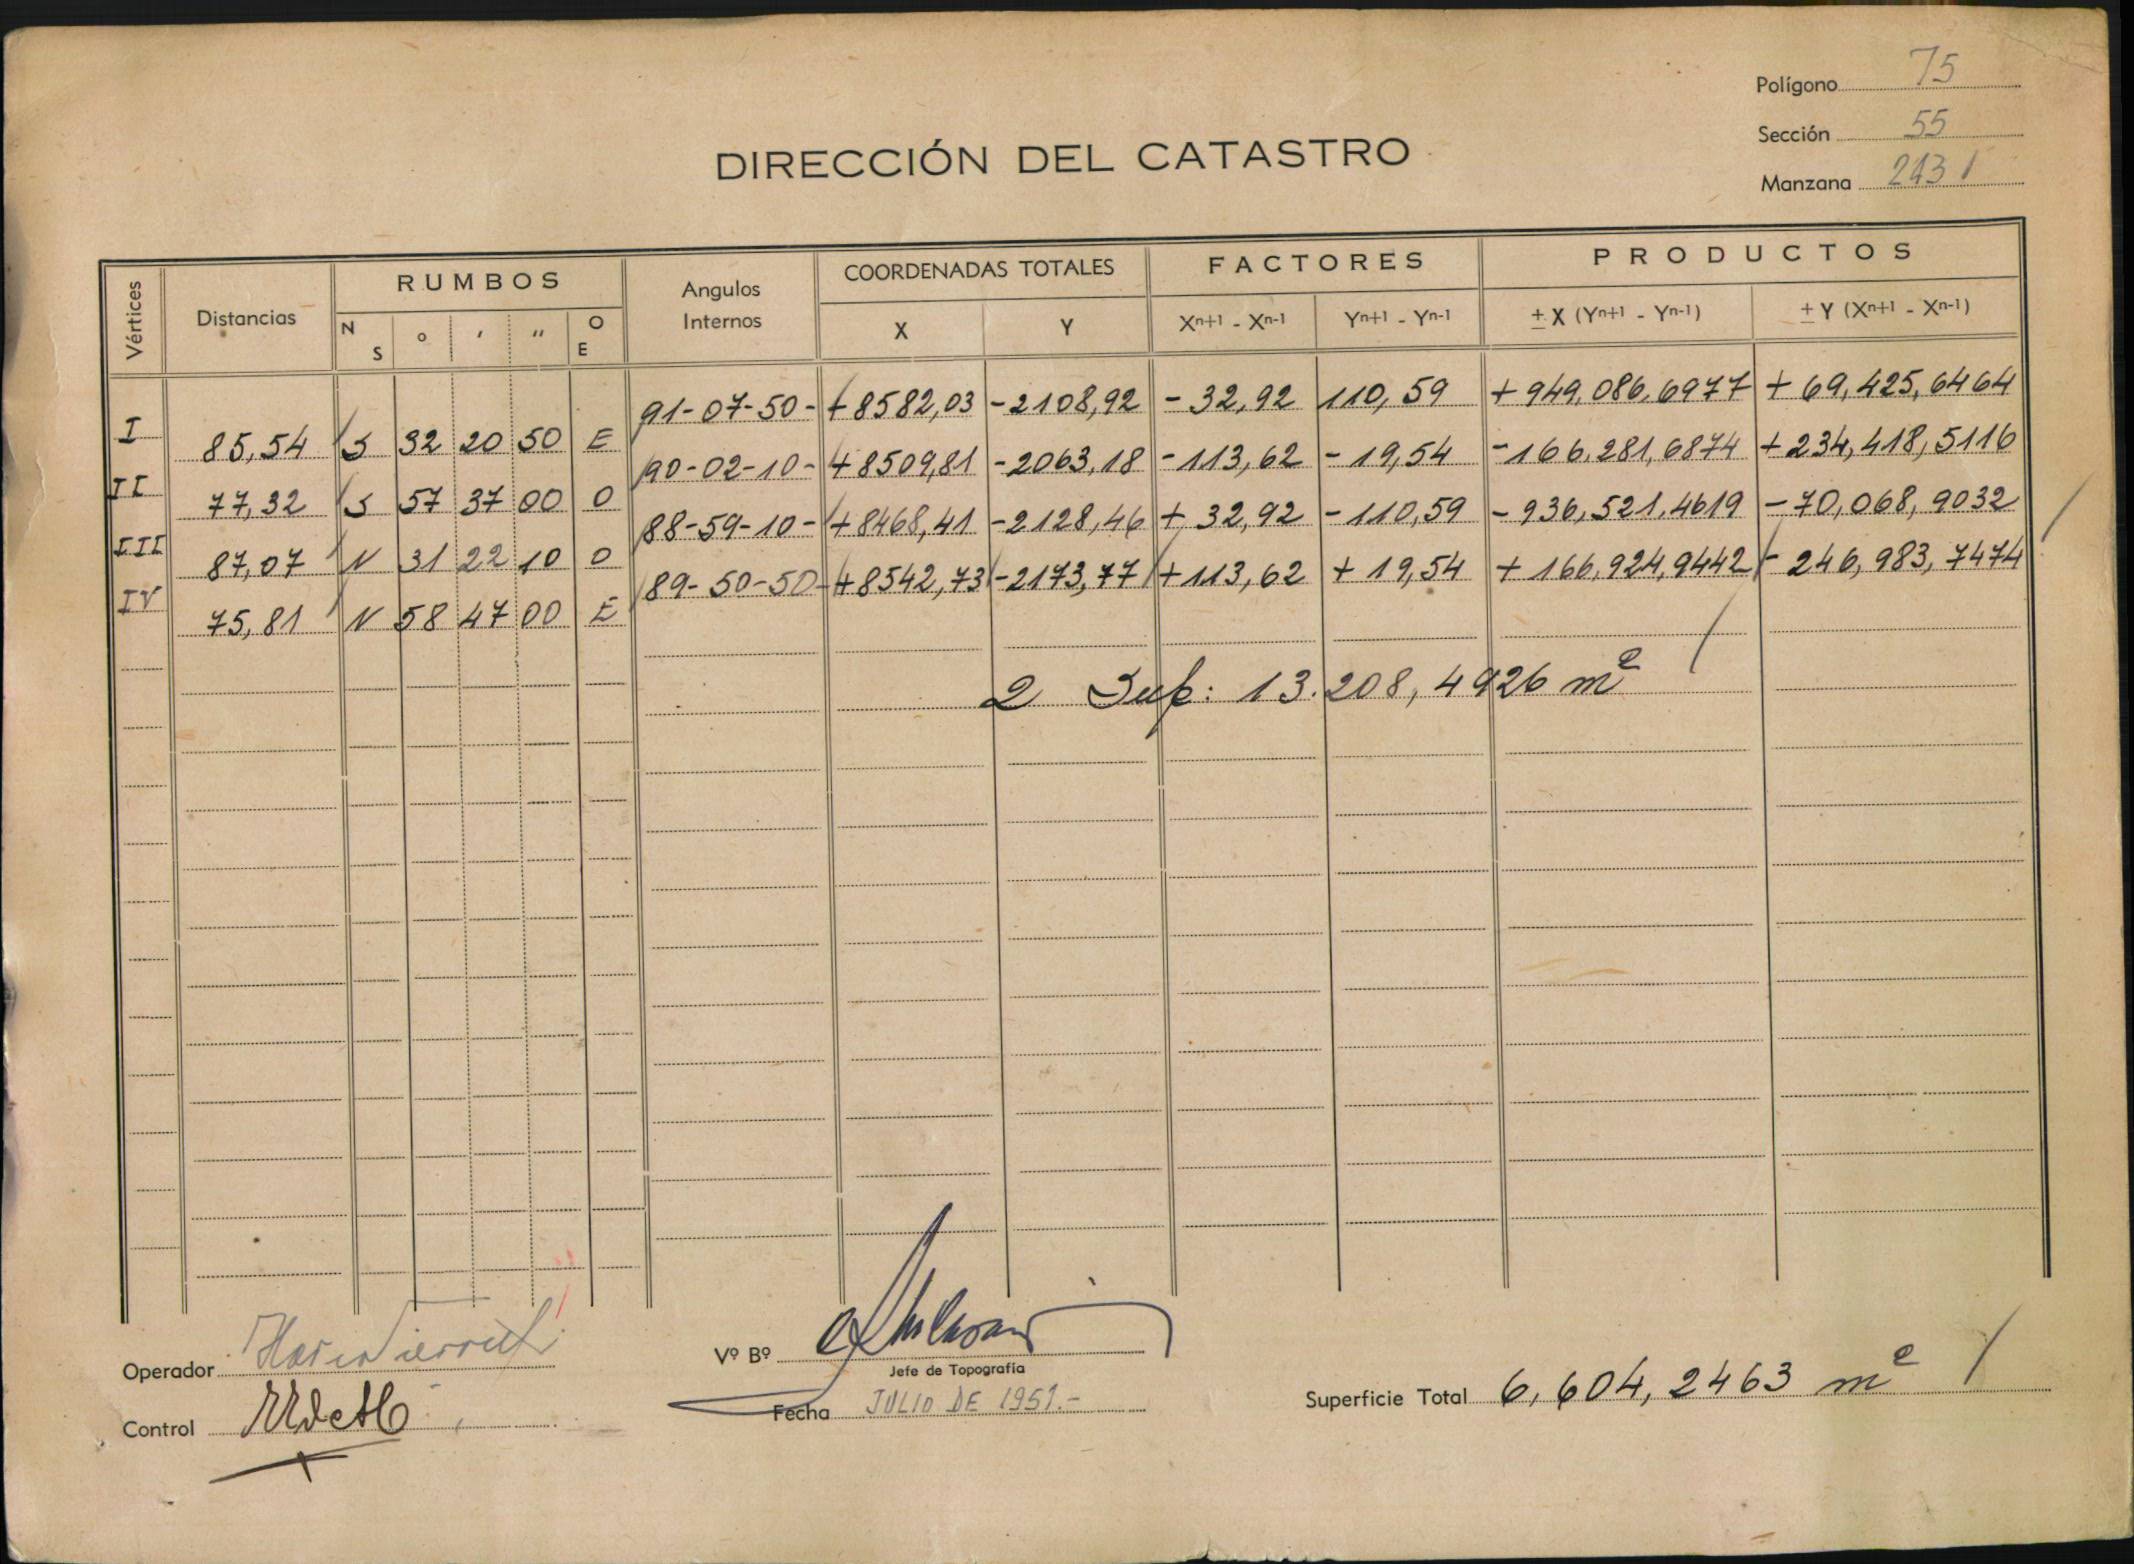 Polígono 75
Sección 55
Manzana 2431
DIRECCIÓN DEL CATASTRO
Vértices Distancias RUMBOS Angulos Internos COORDENADAS TOTALES FACTORES PRODUCTOS
N S ° ′ ″ O E X Y Xn+1 - Xn-1 Yn+1 - Yn-1 ± X (Yn+1 - Yn-1) ± Y (Xn+1 - Xn-1)
91-07-50- +8582,03 -2108,92 -32,92 110,59 +949,086,6977 +69,425,6464
I 85,54 S 32 20 50 E
90-02-10- +8509,81 -2063,18 -113,62 -19,54 -166,281,6874 +234,418,5116
II 77,32 S 57 37 00 O
88-59-10- +8468,41 -2128,46 +32,92 -110,59 -936,521,4619 -70,068,9032
III 87,07 N 31 22 10 O
89-50-50- +8542,73 -2173,77 +113,62 +19,54 +166,924,9442 -246,983,7474
IV 75,81 N 58 47 00 E
2 Sup: 13.208,4926 m²
Operador
Vº Bº
Jefe de Topografía
Control
Fecha JULIO DE 1951.-
Superficie Total 6,604,2463 m²